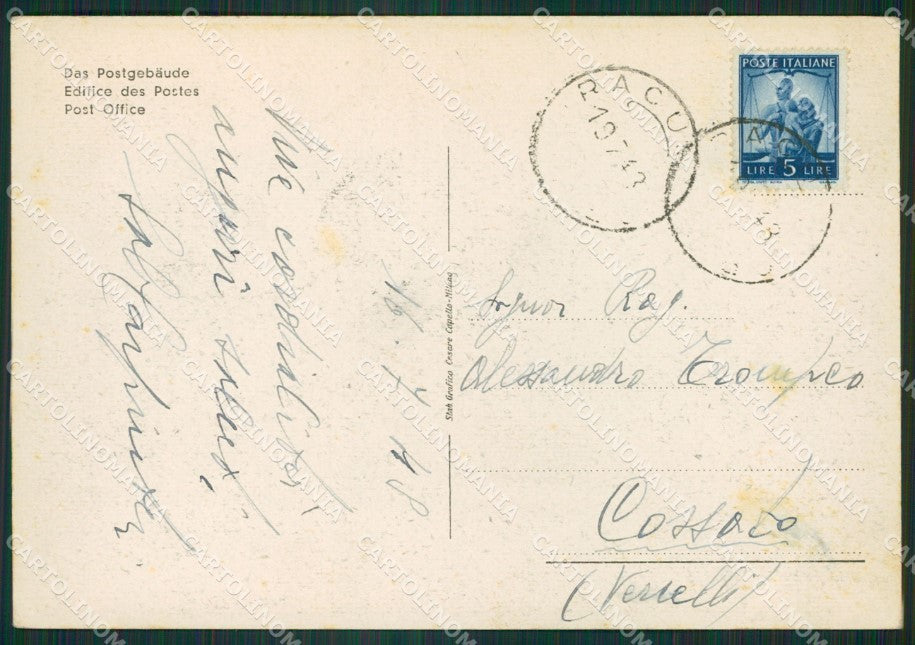 Das Postgebäude
Edifice des Postes
Post Office
Vive cordialità
auguri
16. 7. 48
Stab Grafico Cesare Capello-Milano
POSTE ITALIANE
LIRE 5 LIRE
RACU
19.7.48
48
Signor Rag.
Alessandro Trompeo
Cossato
(Vercelli)
CARTOLINOMANIA